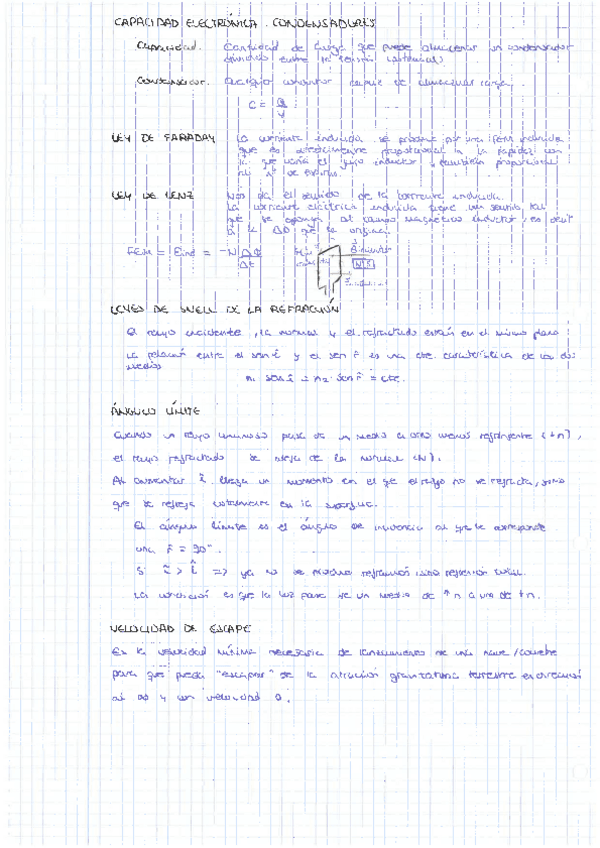 CAPACIDAD ELECTRÓNICA. CONDENSADORES
Capacidad. Cantidad de carga que puede almacenar un condensador
dividido entre la tensión (potencial)
Condensador. Cualquier conductor capaz de almacenar carga.
C = Q/V
LEY DE FARADAY La corriente inducida se produce por una FEM inducida
que es directamente proporcional a la rapidez con
la que varía el flujo inductor y también proporcional
al nº de espiras.
LEY DE LENZ Nos da el sentido de la corriente inducida.
La corriente eléctrica inducida tiene un sentido tal
que se opone al campo magnético inductor, es decir
a la ΔΦ que la origina.
FEM = Eind = -N ΔΦ/Δt
N S
LEYES DE SNELL DE LA REFRACCIÓN
El rayo incidente, la normal y el refractado están en el mismo plano
La relación entre el sen î y el sen r̂ es una cte. característica de los dos
medios
n₁ sen î = n₂ · sen r̂ = cte.
ÁNGULO LÍMITE
Cuando un rayo luminoso pasa de un medio a otro menos refringente (↓n),
el rayo refractado se aleja de la normal (N).
Al aumentar î, llega un momento en el que el rayo no se refracta, sino
que se refleja totalmente en la superficie.
El ángulo límite es el ángulo de incidencia al que le corresponde
una r̂ = 90°.
Si î > L̂ => ya no se produce refracción sino reflexión total.
La condición es que la luz pase de un medio de ↑n a uno de ↓n.
VELOCIDAD DE ESCAPE
Es la velocidad mínima necesaria de lanzamiento de una nave/cohete
para que pueda "escapar" de la atracción gravitatoria terrestre en dirección
al ∞ y con velocidad 0.